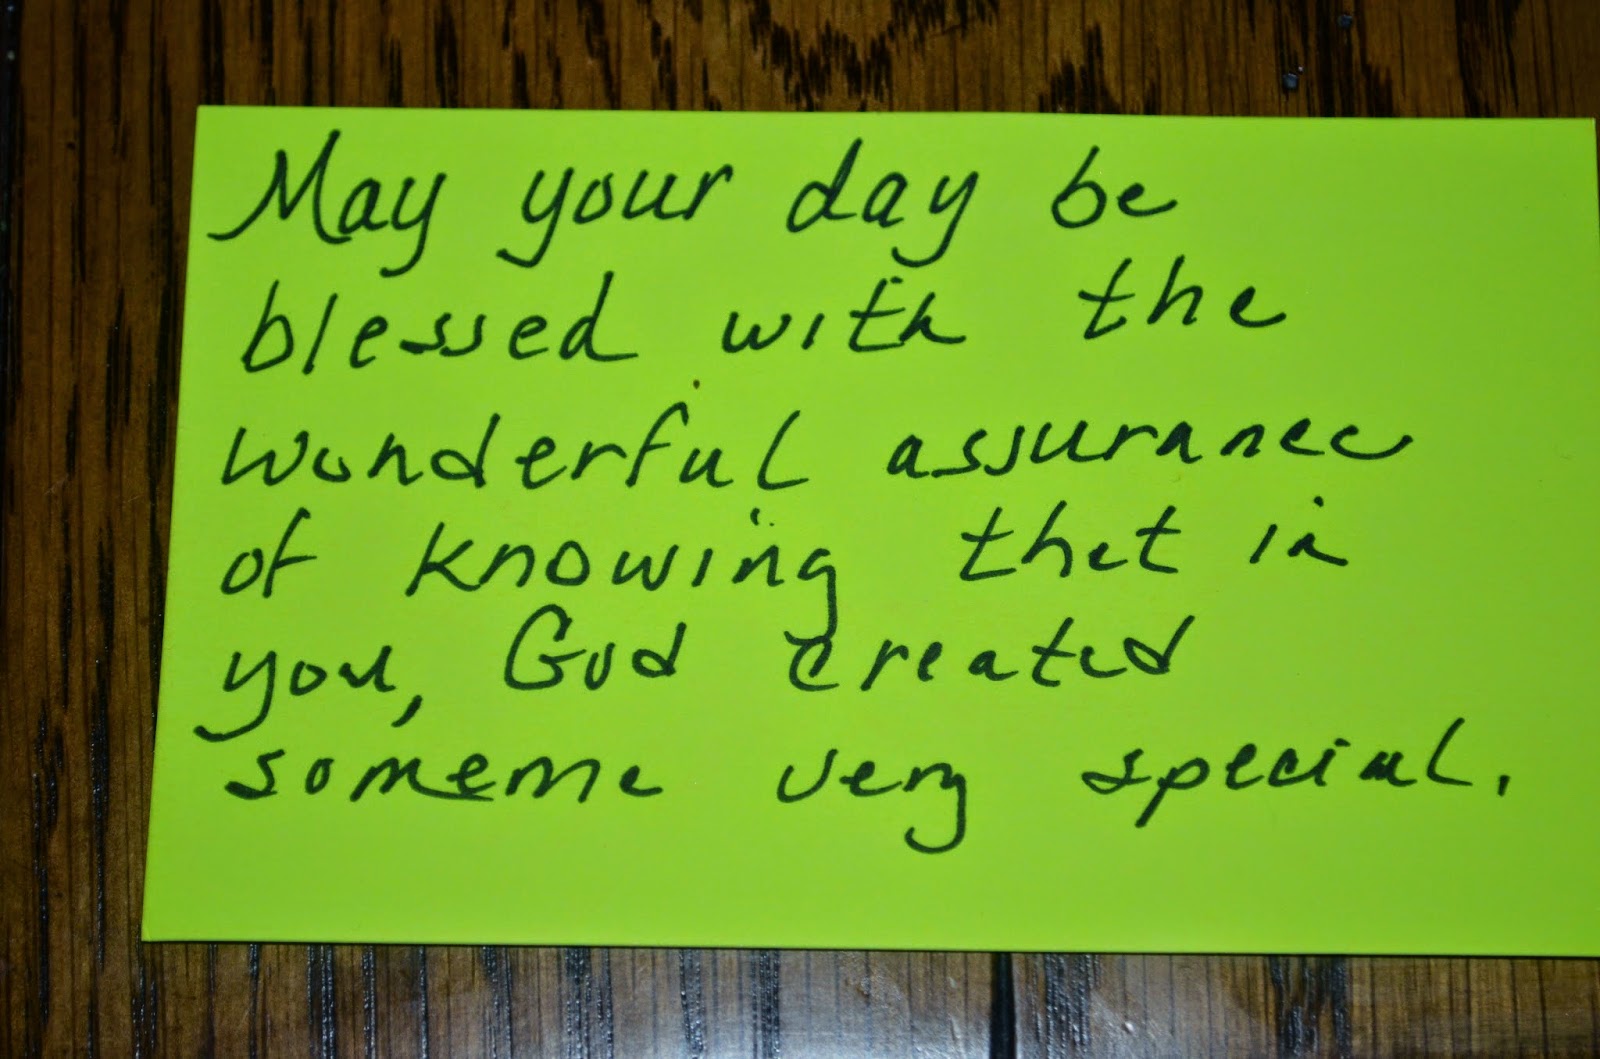 May your day be
blessed with the
wonderful assurance
of knowing that in
you, God created
someone very special.